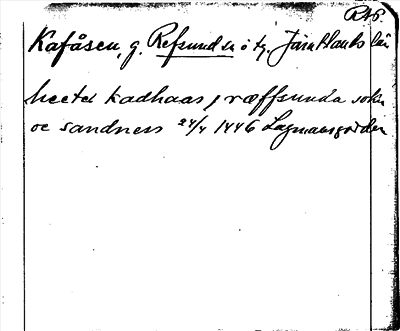 RAP.
Kafåsen, g. Refsund sn o tg. Jämtlands län
heeter kadhaas j ræffsunda sokn
oc sandness 24/4 1446 Lagmansgården